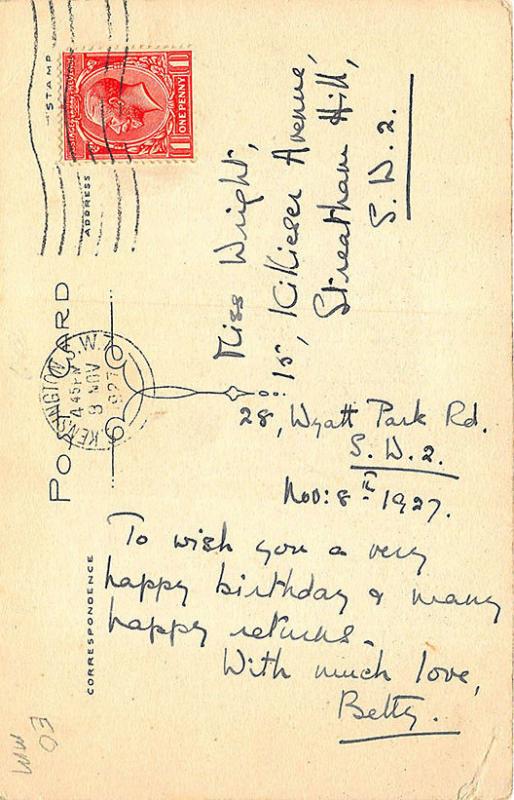 POST CARD
STAMP
ADDRESS
ONE PENNY
KENSINGTON S.W.7
4 45 PM
8 NOV
1927
Miss Wright,
15, Kilkieser Avenue,
Streatham Hill,
S.W.2.
28, Wyatt Park Rd.
S.W.2.
Nov: 8th 1927.
CORRESPONDENCE
To wish you a very
happy birthday & many
happy returns.
With much love,
Betty.